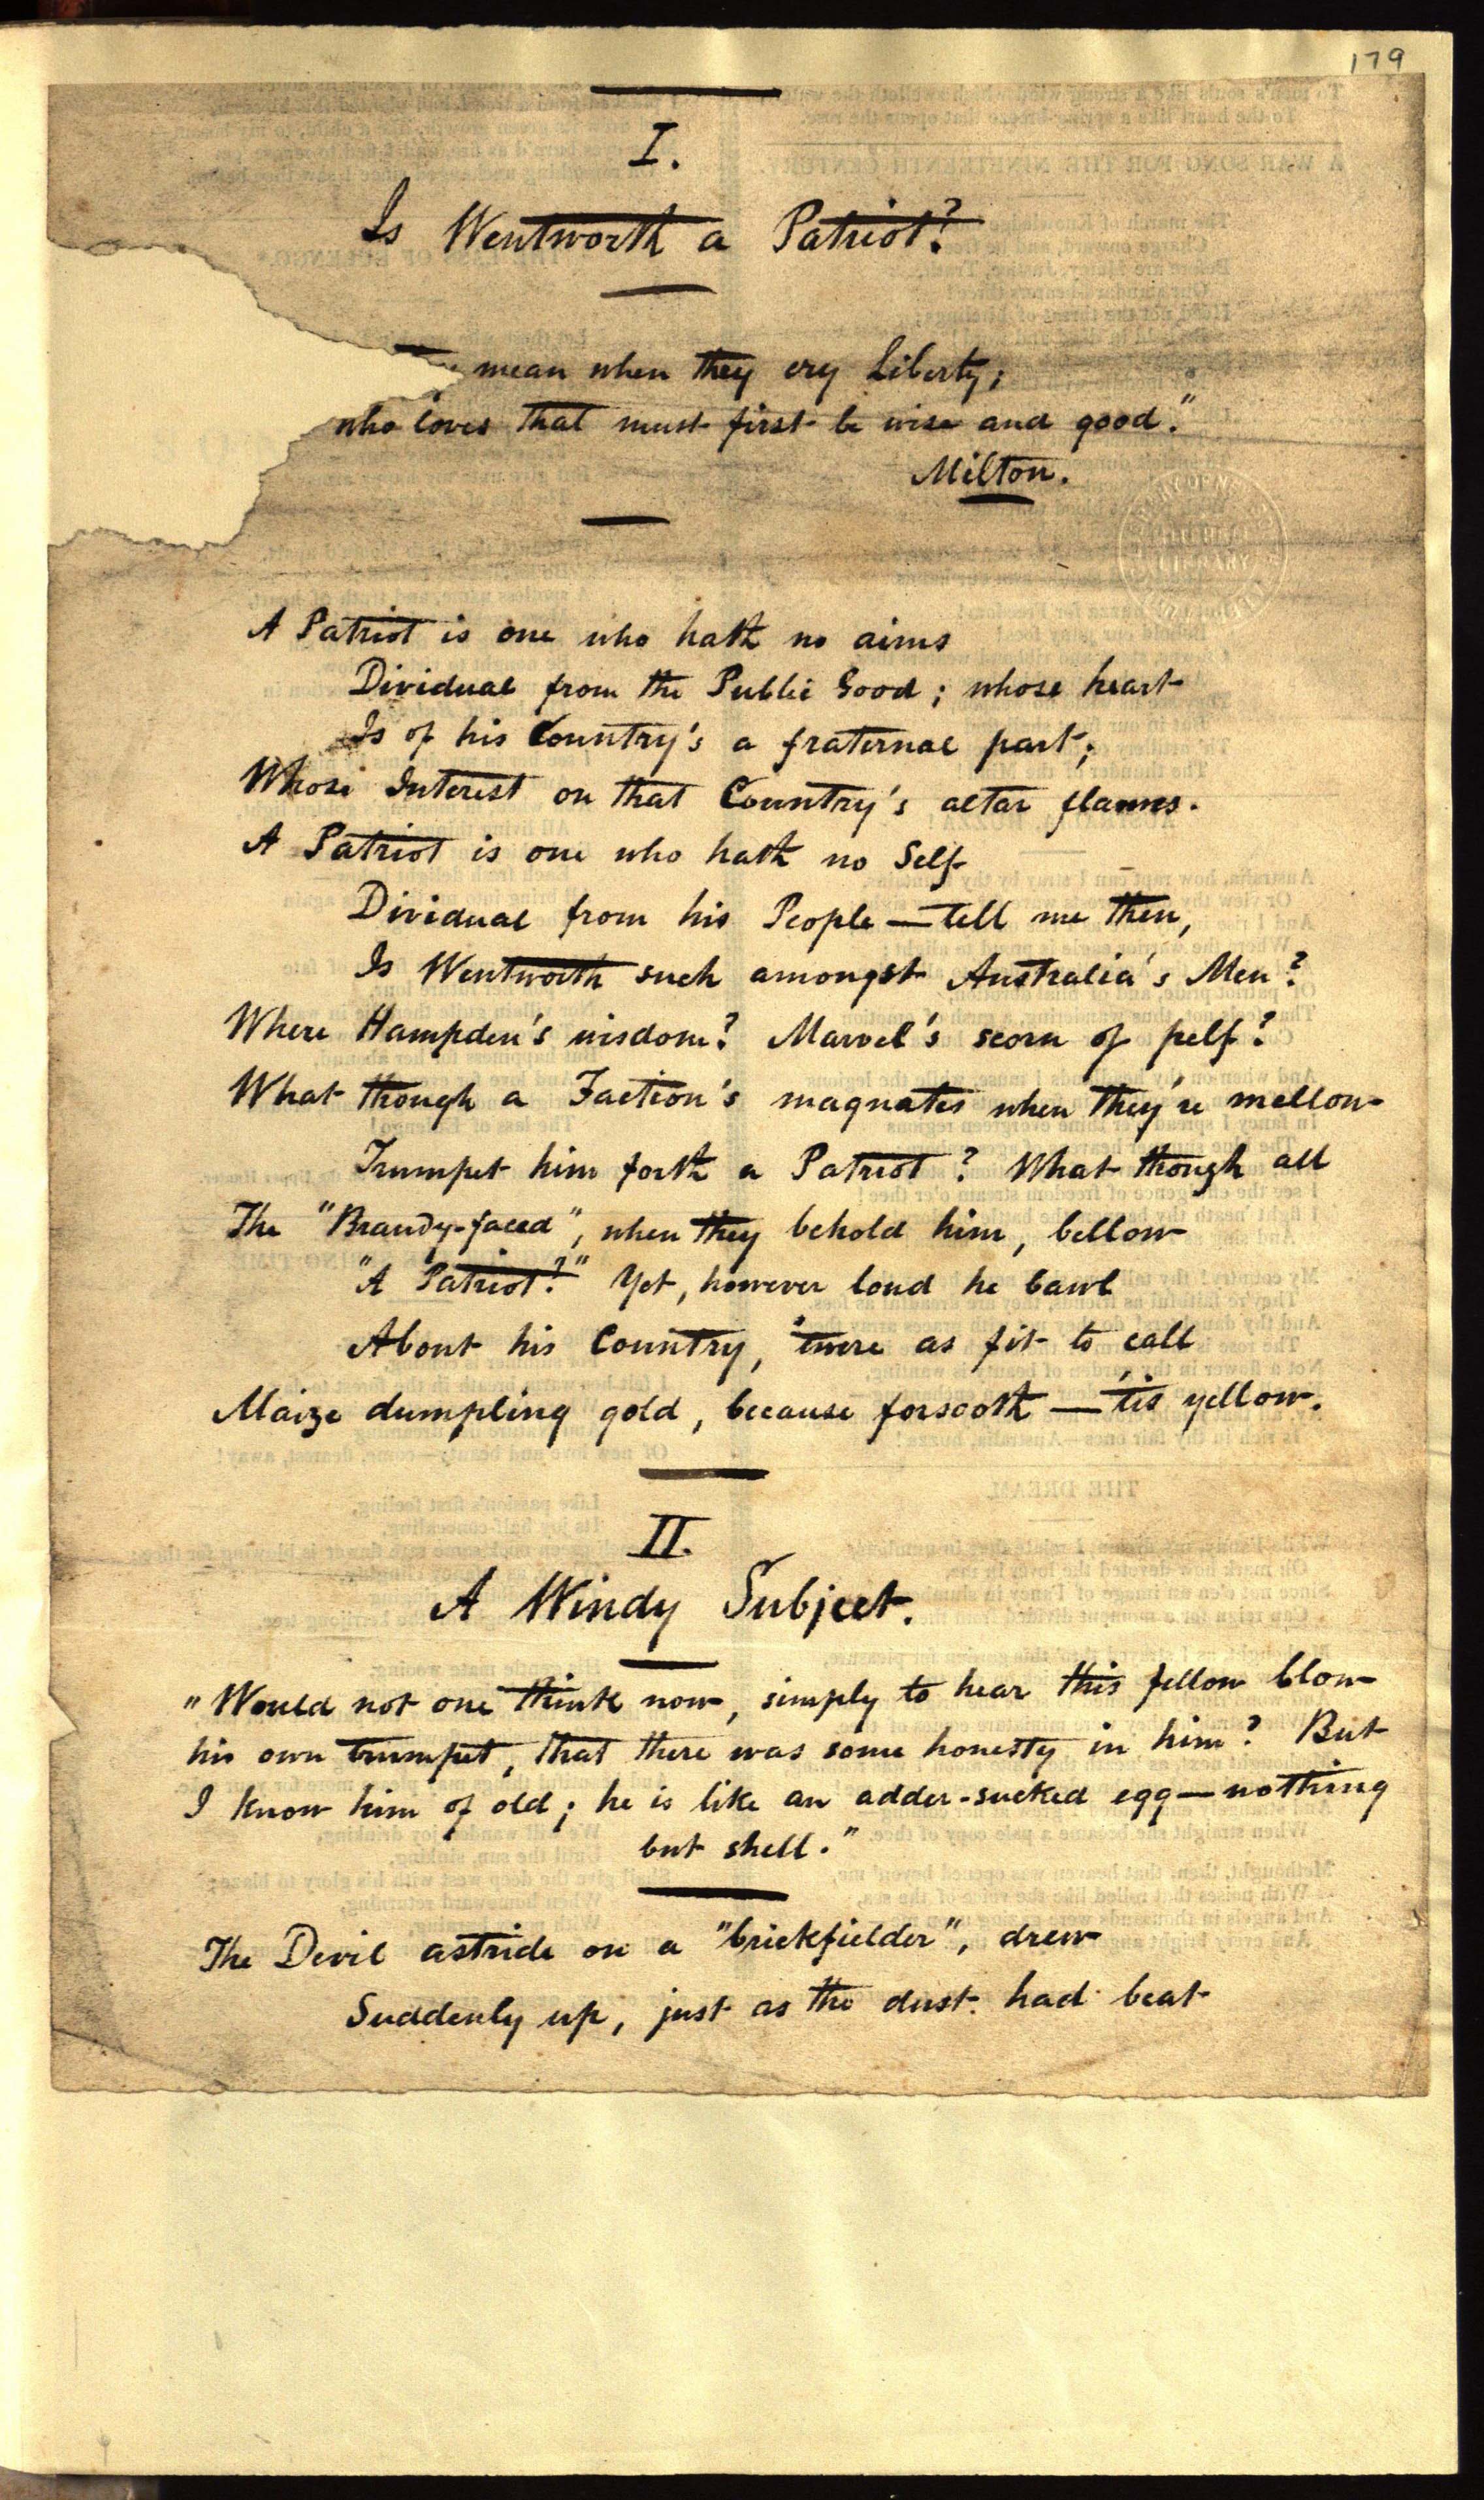 179
I.
Is Wentworth a Patriot?
mean when they cry Liberty;
who loves that must first be wise and good."
Milton.
A Patriot is one who hath no aims
Dividual from the Public Good; whose heart
Is of his Country's a fraternal part;
Whose Interest on that Country's altar flames.
A Patriot is one who hath no Self
Dividual from his People — tell me then,
Is Wentworth such amongst Australia's Men?
Where Hampden's wisdom? Marvel's scorn of pelf?
What though a Faction's magnates when they're mellow
Trumpet him forth a Patriot? What though all
The "Brandy-faced", when they behold him, bellow
"A Patriot?" Yet, however loud he bawl
About his Country, 'twere as fit to call
Maize dumpling gold, because forsooth — 'tis yellow.
II.
A Windy Subject.
"Would not one think now, simply to hear this fellow blow
his own trumpet, that there was some honesty in him? But
I know him of old; he is like an adder-sucked egg — nothing
but shell."
The Devil astride on a "brickfielder", drew
Suddenly up, just as the dust had beat